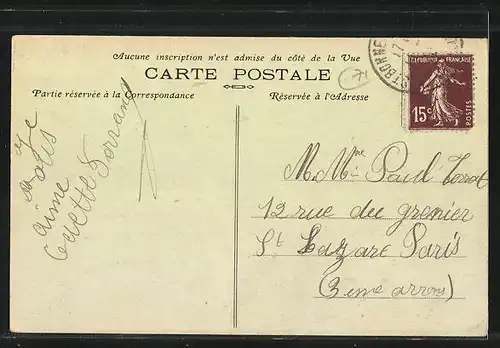 Aucune inscription n'est admise du côté de la Vue
CARTE POSTALE
Partie réservée à la Correspondance
Réservée à l'Adresse
Je
vous
aime
RÉPUBLIQUE FRANÇAISE
15c
POSTES
71
M. Mme Paul
12 rue du grenier
St Lazare Paris
(3eme arrons)